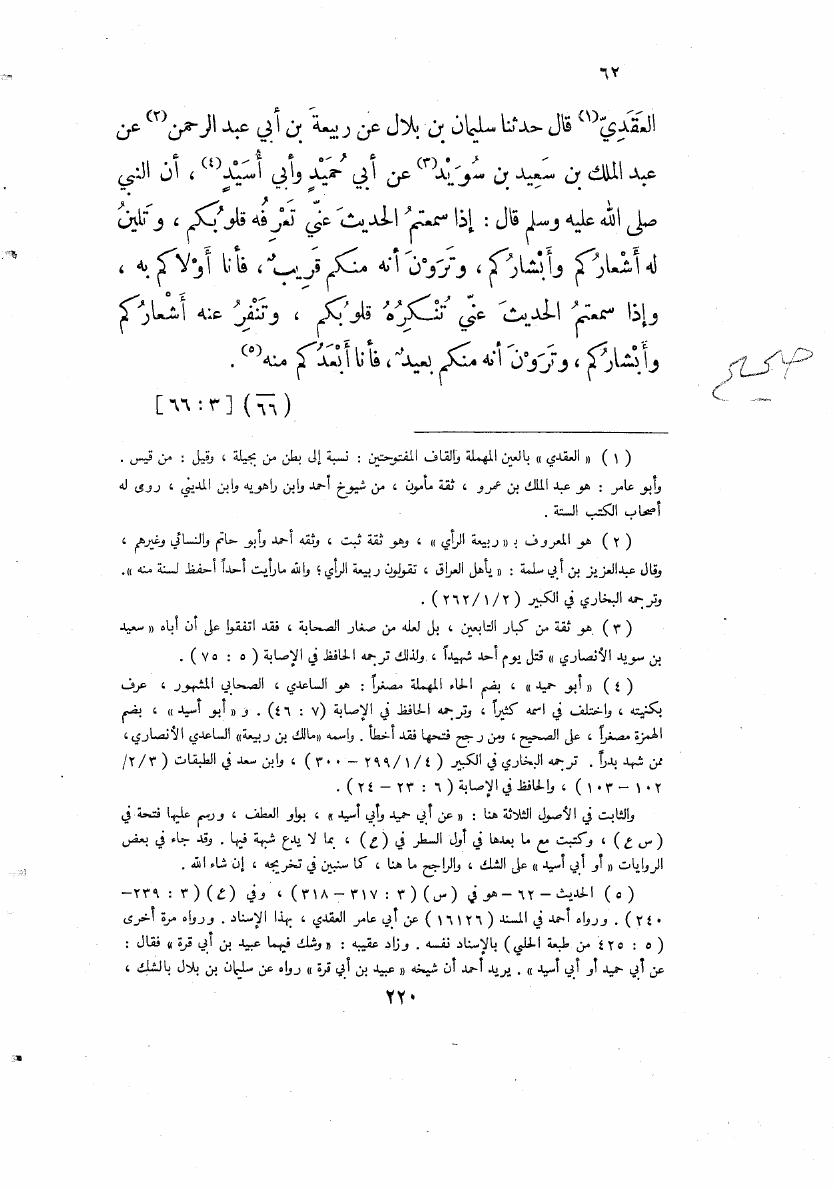 ٦٢
العَقَدِيّ(١) قال حدثنا سليمان بن بلال عن ربيعةَ بن أبي عبد الرحمن(٢) عن
عبد الملك بن سَعِيد بن سُوَيْد(٣) عن أبي حُمَيْدٍ وأبي أُسَيْدٍ(٤) ، أن النبي
صلى الله عليه وسلم قال : إذا سمعتمُ الحديثَ عنّي تَعْرِفُه قلوبُكم ، وتَلينُ
له أَشْعارُكم وأَبْشارُكم ، وتَرَوْنَ أنه منكم قَرِيبٌ ، فأنا أَوْلاكم به ،
وإذا سمعتمُ الحديثَ عنّي تُنْكِرُهُ قلوبُكم ، وتَنْفِرُ عنه أشعارُكم
وأبْشارُكم ، وتَرَوْنَ أنه منكم بعيدٌ ، فأنا أَبْعَدُكم منه(٥) .
صحيح
(٦٦) [٣ : ٦٦]
(١) « العقدي » بالعين المهملة والقاف المفتوحتين : نسبة إلى بطن من بجيلة ، وقيل : من قيس .
وأبو عامر : هو عبد الملك بن عمرو ، ثقة مأمون ، من شيوخ أحمد وابن راهويه وابن المديني ، روى له
أصحاب الكتب الستة .
(٢) هو المعروف بـ « ربيعة الرأي » ، وهو ثقة ثبت ، وثقه أحمد وأبو حاتم والنسائي وغيرهم ،
وقال عبدالعزيز بن أبي سلمة : « يأهل العراق ، تقولون ربيعة الرأي ؛ والله مارأيت أحداً أحفظ لسنة منه » .
وترجمه البخاري في الكبير (٢/١/٢٦٢) .
(٣) هو ثقة من كبار التابعين ، بل لعله من صغار الصحابة ، فقد اتفقوا على أن أباه « سعيد
بن سويد الأنصاري » قتل يوم أحد شهيداً ، ولذلك ترجمه الحافظ في الإصابة (٥ : ٧٥) .
(٤) « أبو حميد » ، بضم الحاء المهملة مصغراً : هو الساعدي ، الصحابي المشهور ، عرف
بكنيته ، واختلف في اسمه كثيراً ، وترجمه الحافظ في الإصابة (٧ : ٤٦) . و « أبو أسيد » ، بضم
الهمزة مصغراً ، على الصحيح ، ومن رجح فتحها فقد أخطأ . واسمه «مالك بن ربيعة» الساعدي الأنصاري ،
ممن شهد بدراً . ترجمه البخاري في الكبير (٤/١/٢٩٩ – ٣٠٠) ، وابن سعد في الطبقات (٣/٢/
١٠٢ – ١٠٣) ، والحافظ في الإصابة (٦ : ٢٣ – ٢٤) .
والثابت في الأصول الثلاثة هنا : « عن أبي حميد وأبي أسيد » ، بواو العطف ، ورسم عليها فتحة في
(س ع) ، وكتبت مع ما بعدها في أول السطر في (ح) ، بما لا يدع شبهة فيها . وقد جاء في بعض
الروايات « أو أبي أسيد » على الشك ، والراجح ما هنا ، كما سنبين في تخريجه ، إن شاء الله .
(٥) الحديث – ٦٢ – هو في (س) (٣ : ٣١٧ – ٣١٨) ، وفي (ع) (٣ : ٢٣٩ –
٢٤٠) . ورواه أحمد في المسند (١٦١٢٦) عن أبي عامر العقدي ، بهذا الإسناد . ورواه مرة أخرى
(٥ : ٤٢٥ من طبعة الحلبي) بالإسناد نفسه . وزاد عقيبه : « وشك فيهما عبيد بن أبي قرة » فقال :
عن أبي حميد أو أبي أسيد » . يريد أحمد أن شيخه « عبيد بن أبي قرة » رواه عن سليمان بن بلال بالشك ،
٢٢٠